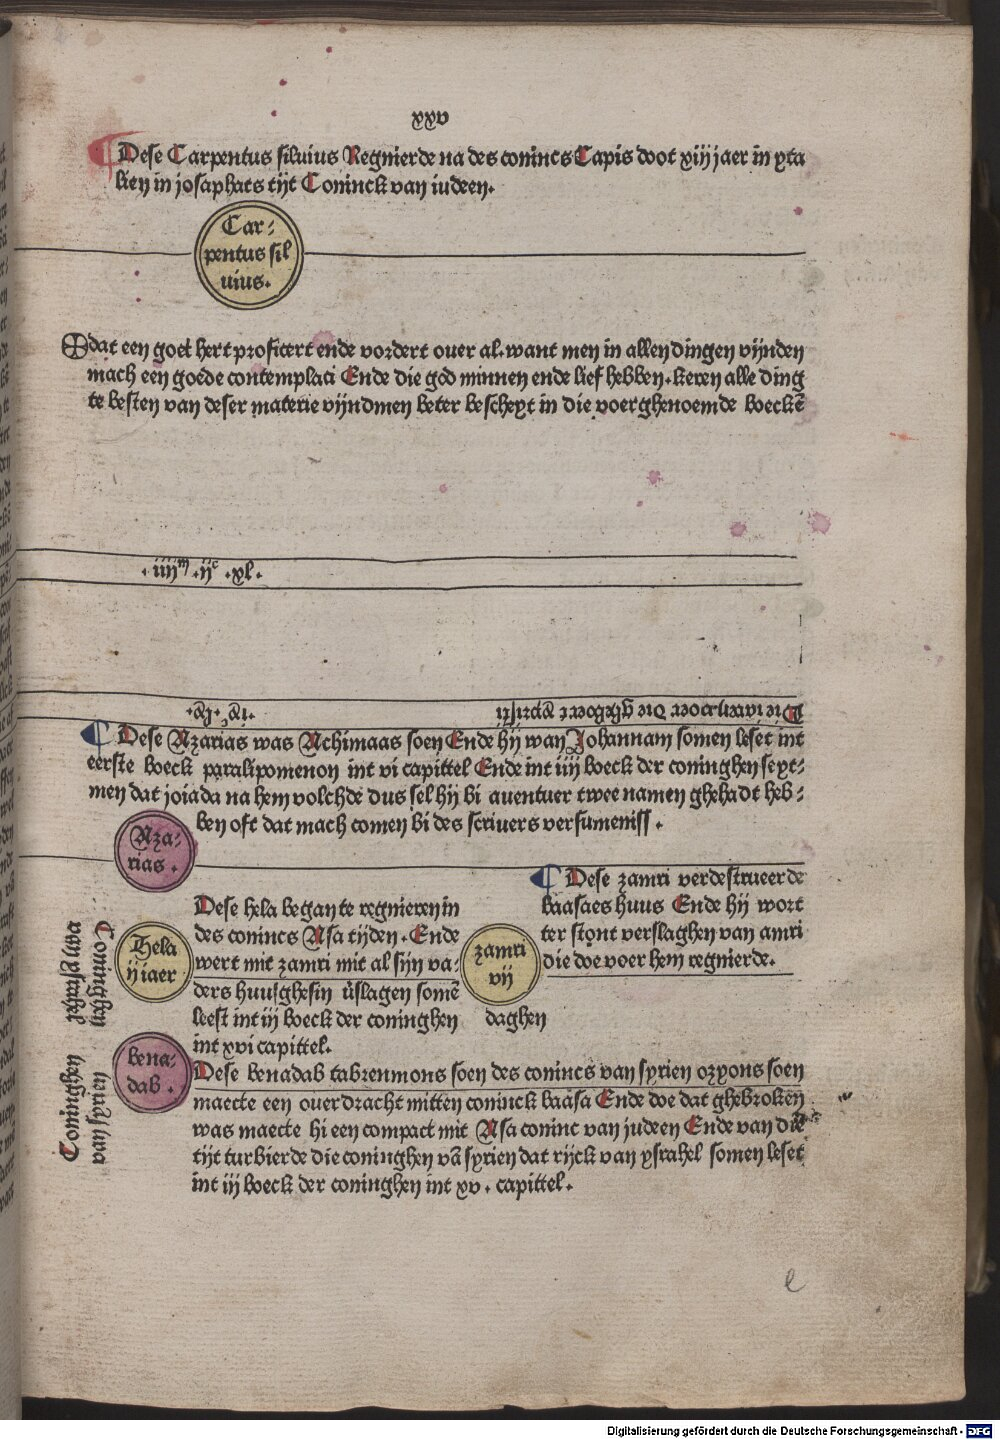 xxv
Dese Carpentus siluius Regnierde na des conincs Capis doot xiij jaer in yta
lien in josaphats tijt Coninck van iudeen.
Car-
pentus sil
uius.
dat een goet hert proficert ende vordert ouer al. want men in allen dingen vijnden
mach een goede contemplaci Ende die god minnen ende lief hebben. keren alle ding
te besten van deser materie vijndmen beter bescheyt in die voerghenoemde boeckē
. iiijᵐ . ijᶜ . xl .
Die iaren voer die gheboert cpristi
. ixᶜ . lix .
Dese Azarias was Achimaas soen Ende hij wan Johannam somen leset int
eerste boeck paralipomenon int vi capittel Ende int iiij boeck der coninghen seyt-
men dat joiada na hem volchde dus sel hij bi auentuer twee namen ghehadt heb-
ben oft dat mach comen bi des scriuers versumeniss .
Aza-
rias .
Dese hela began te regnieren in
des conincs Asa tijden . Ende
wert mit zamri mit al sijn va-
ders huusghesin ūslagen somē
leest int iij boeck der coninghen
int xvi capittel.
Dese zamri verdestrueerde
baasaes huus Ende hij wort
ter stont verslaghen van amri
die doe voer hem regnierde.
Coninghen
van israhel
Hela
ij iaer
zamri
vij
daghen
Coninghen
van syrien
bena-
dab .
Dese benadab tabrenmons soen des conincs van syrien ozyons soen
maecte een ouerdracht mitten coninck baasa Ende doe dat ghebroken
was maecte hi een compact mit Asa coninc van judeen Ende van die
tijt turbierde die coninghen vā syrien dat rijck van ysrahel somen leset
int iij boeck der coninghen int xv . capittel .
e
Digitalisierung gefördert durch die Deutsche Forschungsgemeinschaft - DFG